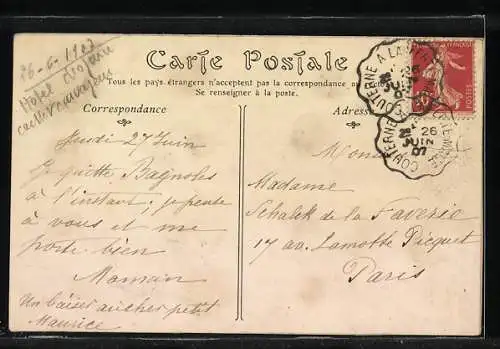 26-6-1907
Hotel
Carte Postale
Tous les pays étrangers n'acceptent pas la correspondance au
Se renseigner à la poste.
Correspondance
Adress
Jeudi 27 Juin
Je quitte Bagnoles
à l'instant; je pense
à vous et me
porte bien
Maman
Un baiser au cher petit
Maurice
Madame
Schalck de la Faverie
17 av. Lamotte Picquet
Paris
COUTERNE A LA
26
JUIN
COUTERNE
26
JUIN
POSTES